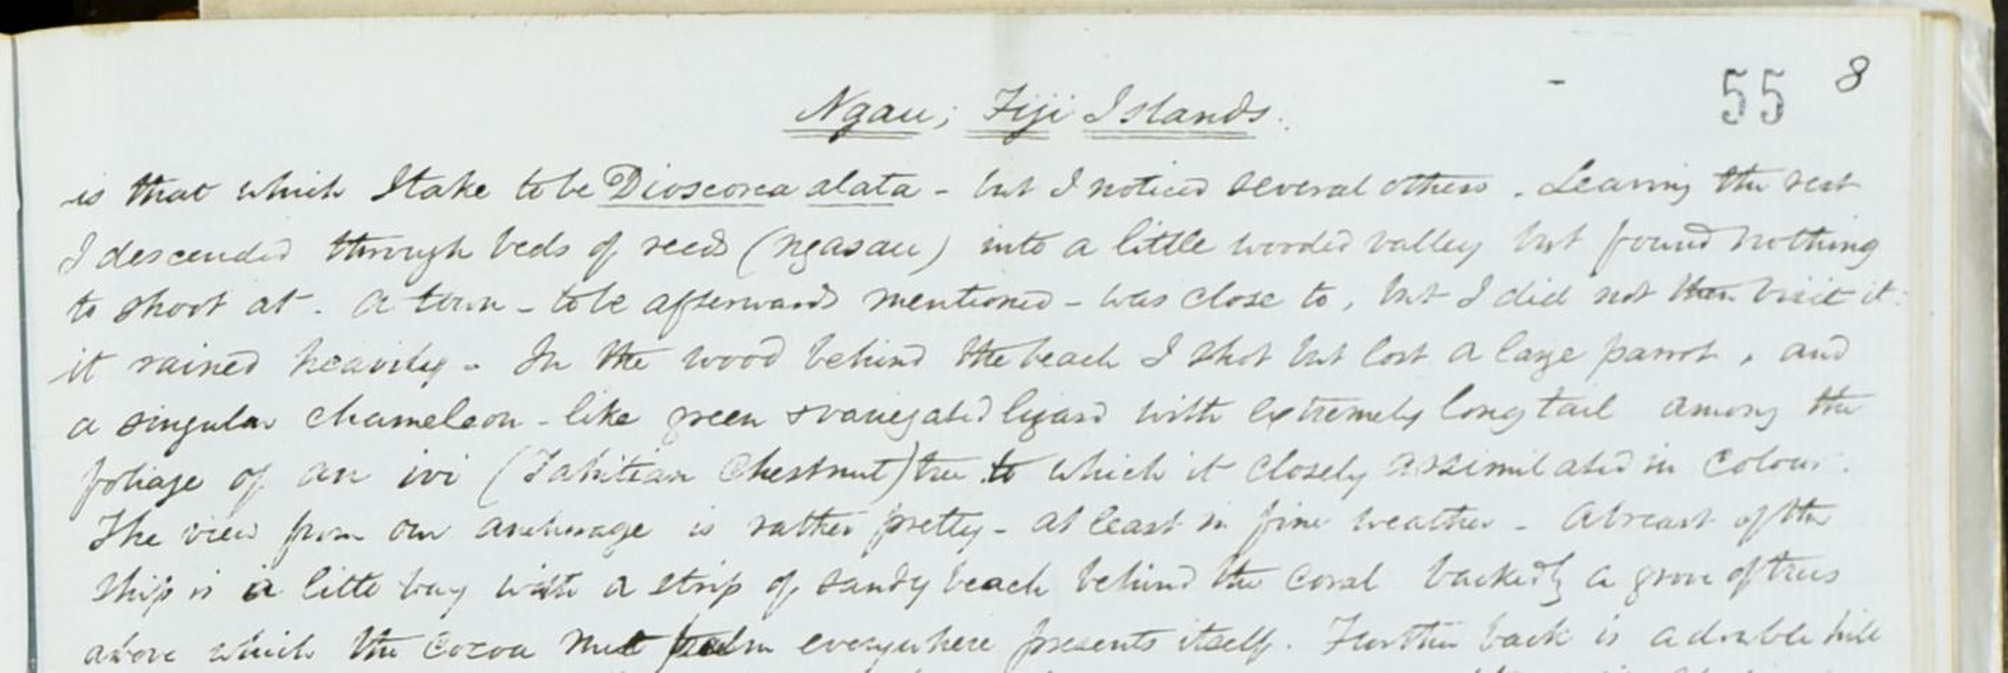 55 8
Ngau; Fiji Islands.
is that which I take to be Dioscorea alata - but I noticed several others. Leaving the rest
I descended through beds of reeds (ngasau) into a little wooded valley but found nothing
to shoot at. A town - to be afterwards mentioned - was close to, but I did not then visit it:
it rained heavily. In the wood behind the beach I shot but lost a large parrot, and
a singular chameleon-like green & variegated lizard with extremely long tail among the
foliage of an ivi (Tahitian Chestnut) tree to which it closely assimilated in colour.
The view from our anchorage is rather pretty - at least in fine weather - Abreast of the
ship is a little bay with a strip of sandy beach behind the coral backed by a grove of trees
above which the Cocoa nut palm everywhere presents itself. Further back is a double hill